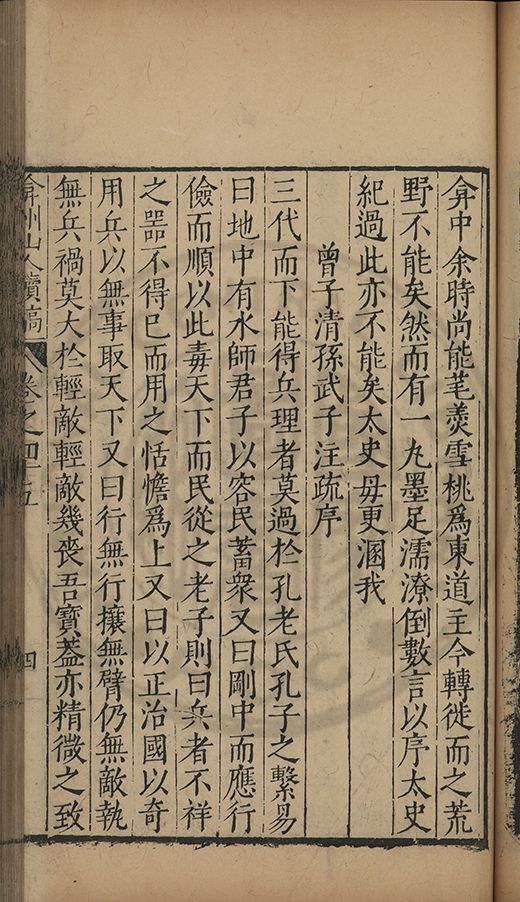 弇中余時尚能芼羮雪桃爲東道主今轉徙而之荒
野不能矣然而有一九墨足濡潦倒數言以序太史
紀過此亦不能矣太史毋更溷我
曾子清孫武子注疏序
三代而下能得兵理者莫過於孔老氏孔子之繫易
曰地中有水師君子以容民蓄衆又曰剛中而應行
儉而順以此毒天下而民從之老子則曰兵者不祥
之噐不得已而用之恬憺爲上又曰以正治國以奇
用兵以無事取天下又曰行無行攘無臂仍無敵執
無兵禍莫大於輕敵輕敵幾喪吾寶葢亦精微之致
弇州山人續稿
卷之四十五
四